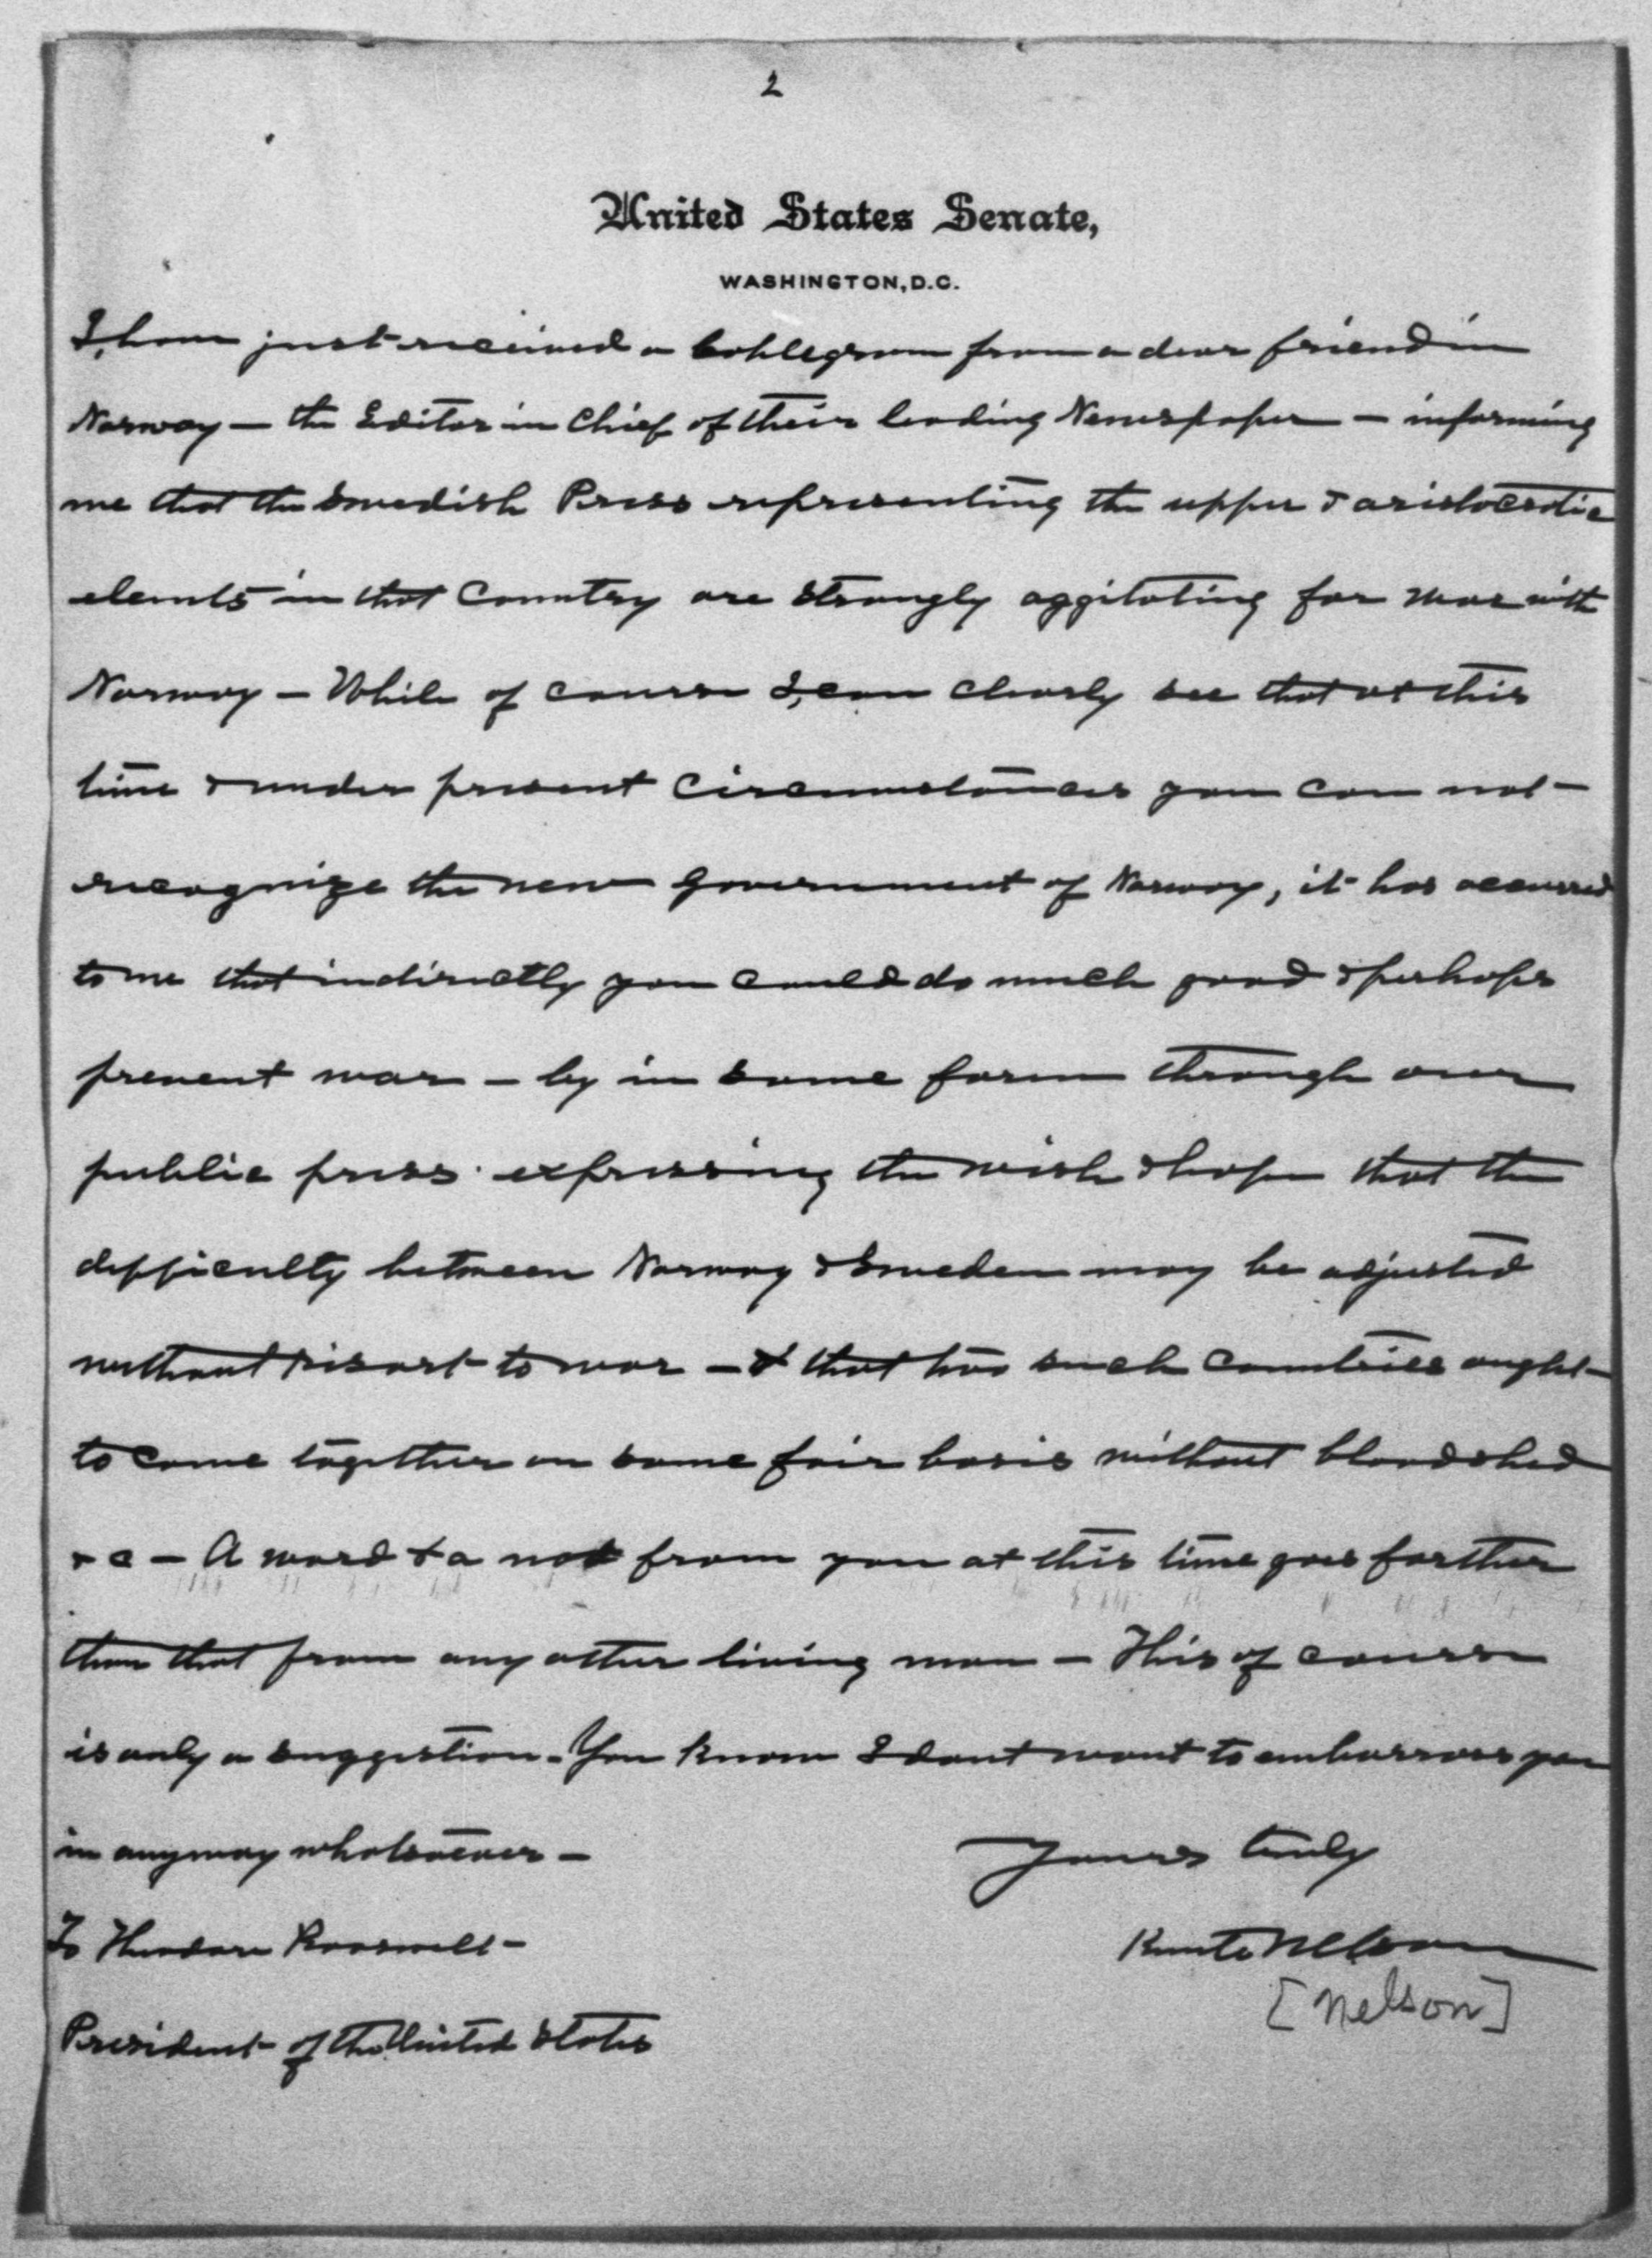 2
United States Senate,
WASHINGTON, D.C.
I, have just received a cablegram from a dear friend in
Norway — the Editor in Chief of their leading Newspaper — informing
me that the Swedish Press representing the upper & aristocratic
elemts in that Country are strongly aggitating for war with
Norway — While of course I, can clearly see that at this
time & under present circumstances you can not
recognize the new Government of Norway, it has occurred
to me that indirectly you could do much good & perhaps
prevent war — by in some form through our
public press expressing the wish & hope that the
difficulty between Norway & Sweden may be adjusted
without resort to war — & that two such countries ought
to come together on some fair basis without bloodshed
& c — A word & a nod from you at this time goes farther
than that from any other living man — This of course
is only a suggestion. You know I dont want to embarrass you
in anyway whatsoever —
Yours truly
To Theodore Roosevelt —
Knute Nelson
[Nelson]
President of the United States